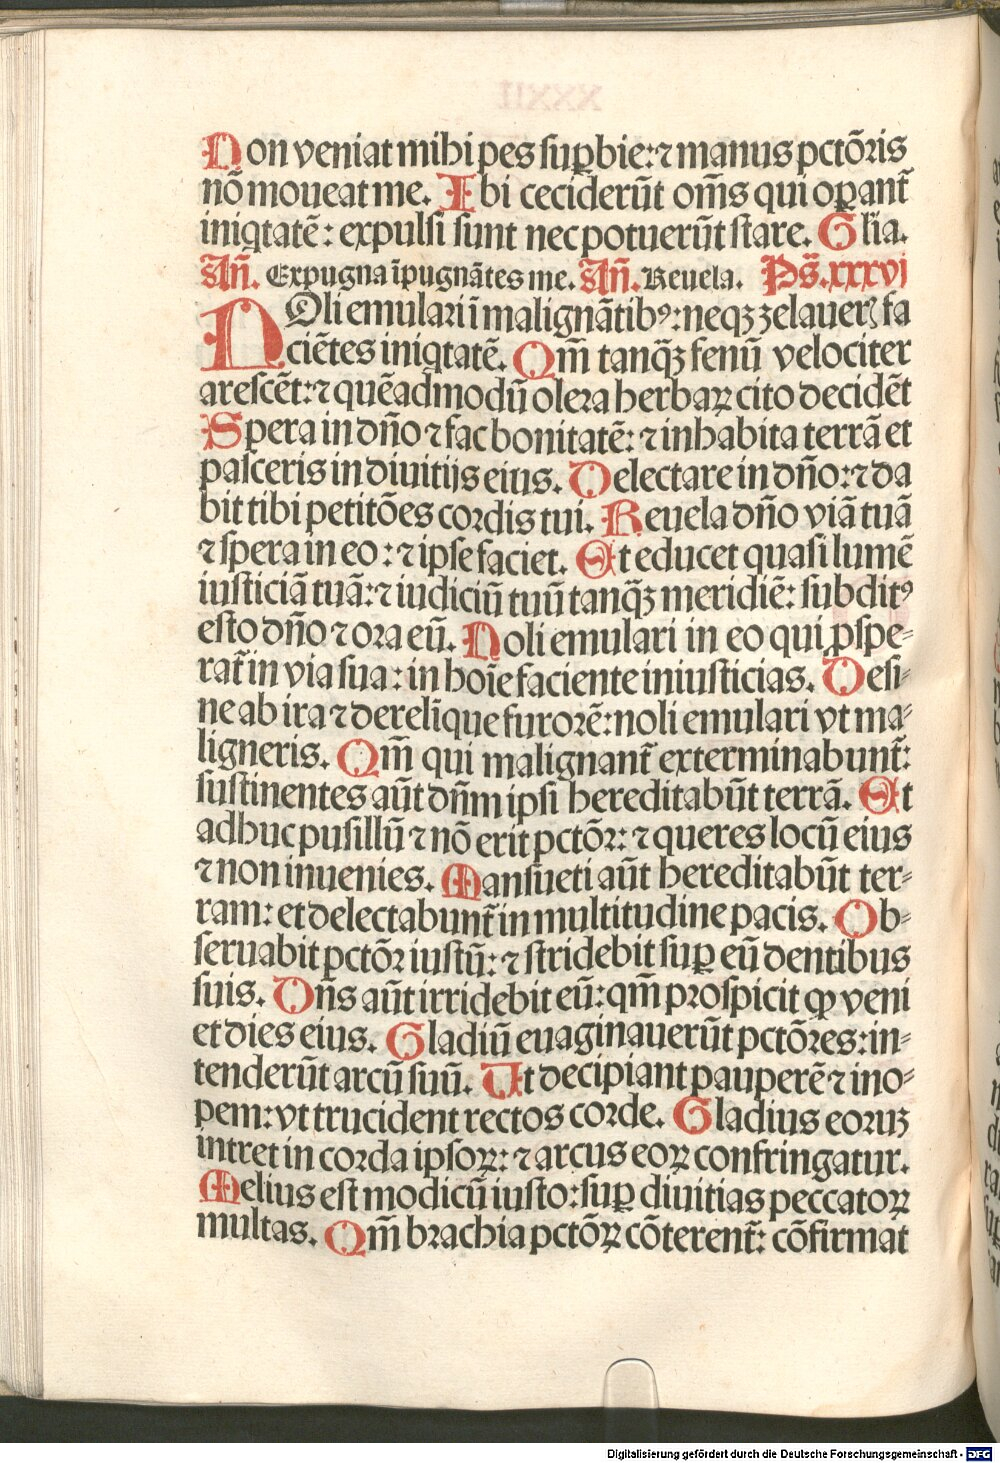 Non veniat mihi pes suꝑbie: ⁊ manus pctõꝛis
nõ moueat me. Ibi ceciderũt om̃s qui oꝑant̃
iniq̇tatẽ: expulsi sunt nec potuerũt stare. Glĩa.
Añ. Expugna ĩpugnãtes me. Añ. Reuela. Ps̃. xxxvj
NOli emulari ĩ malignãtibꝰ: neqꝫ ʒelaueꝝ fa
ciẽtes iniq̇tatẽ. Qm̃ tanq̃ꝫ fenũ velociter
arescẽt: ⁊ quẽadmodũ olera herbaꝝ cito decidẽt
Spera in dño ⁊ fac bonitatẽ: ⁊ inhabita terrã et
pasceris in diuitijs eius. Delectare in dño: ⁊ da
bit tibi petitões coꝛdis tui. Reuela dño viã tuã
⁊ spera in eo: ⁊ ipse faciet. Et educet quasi lumẽ
iusticiã tuã: ⁊ iudiciũ tuũ tanq̃ꝫ meridiẽ: subditꝰ
esto dño ⁊ oꝛa eũ. Noli emulari in eo qui ꝓspe⸗
rat̃ in via sua: in hoĩe faciente iniusticias. Desi⸗
ne ab ira ⁊ derelĩque furoꝛẽ: noli emulari vt ma⸗
ligneris. Qm̃ qui malignant̃ exterminabunt̃:
sustinentes aũt dñm ipsi hereditabũt terrã. Et
adhuc pusillũ ⁊ nõ erit pctõꝛ: ⁊ queres locũ eius
⁊ non inuenies. Mansueti aũt hereditabũt ter⸗
ram: et delectabunt̃ in multitudine pacis. Ob⸗
seruabit pctõꝛ iustũ: ⁊ stridebit suꝑ eũ dentibus
suis. Dñs aũt irridebit eũ: qm̃ pꝛospicit ꝙ veni
et dies eius. Gladiũ euaginauerũt pctõꝛes: in⸗
tenderũt arcũ suũ. Ut decipiant pauperẽ ⁊ ino⸗
pem: vt trucident rectos coꝛde. Gladius eoꝛuꝫ
intret in coꝛda ipsoꝝ: ⁊ arcus eoꝝ confringatur.
Melius est modicũ iusto: suꝑ diuitias peccatoꝝ
multas. Qm̃ bꝛachia pctõꝝ cõterent̃: cõfirmat
Digitalisierung gefördert durch die Deutsche Forschungsgemeinschaft - DFG